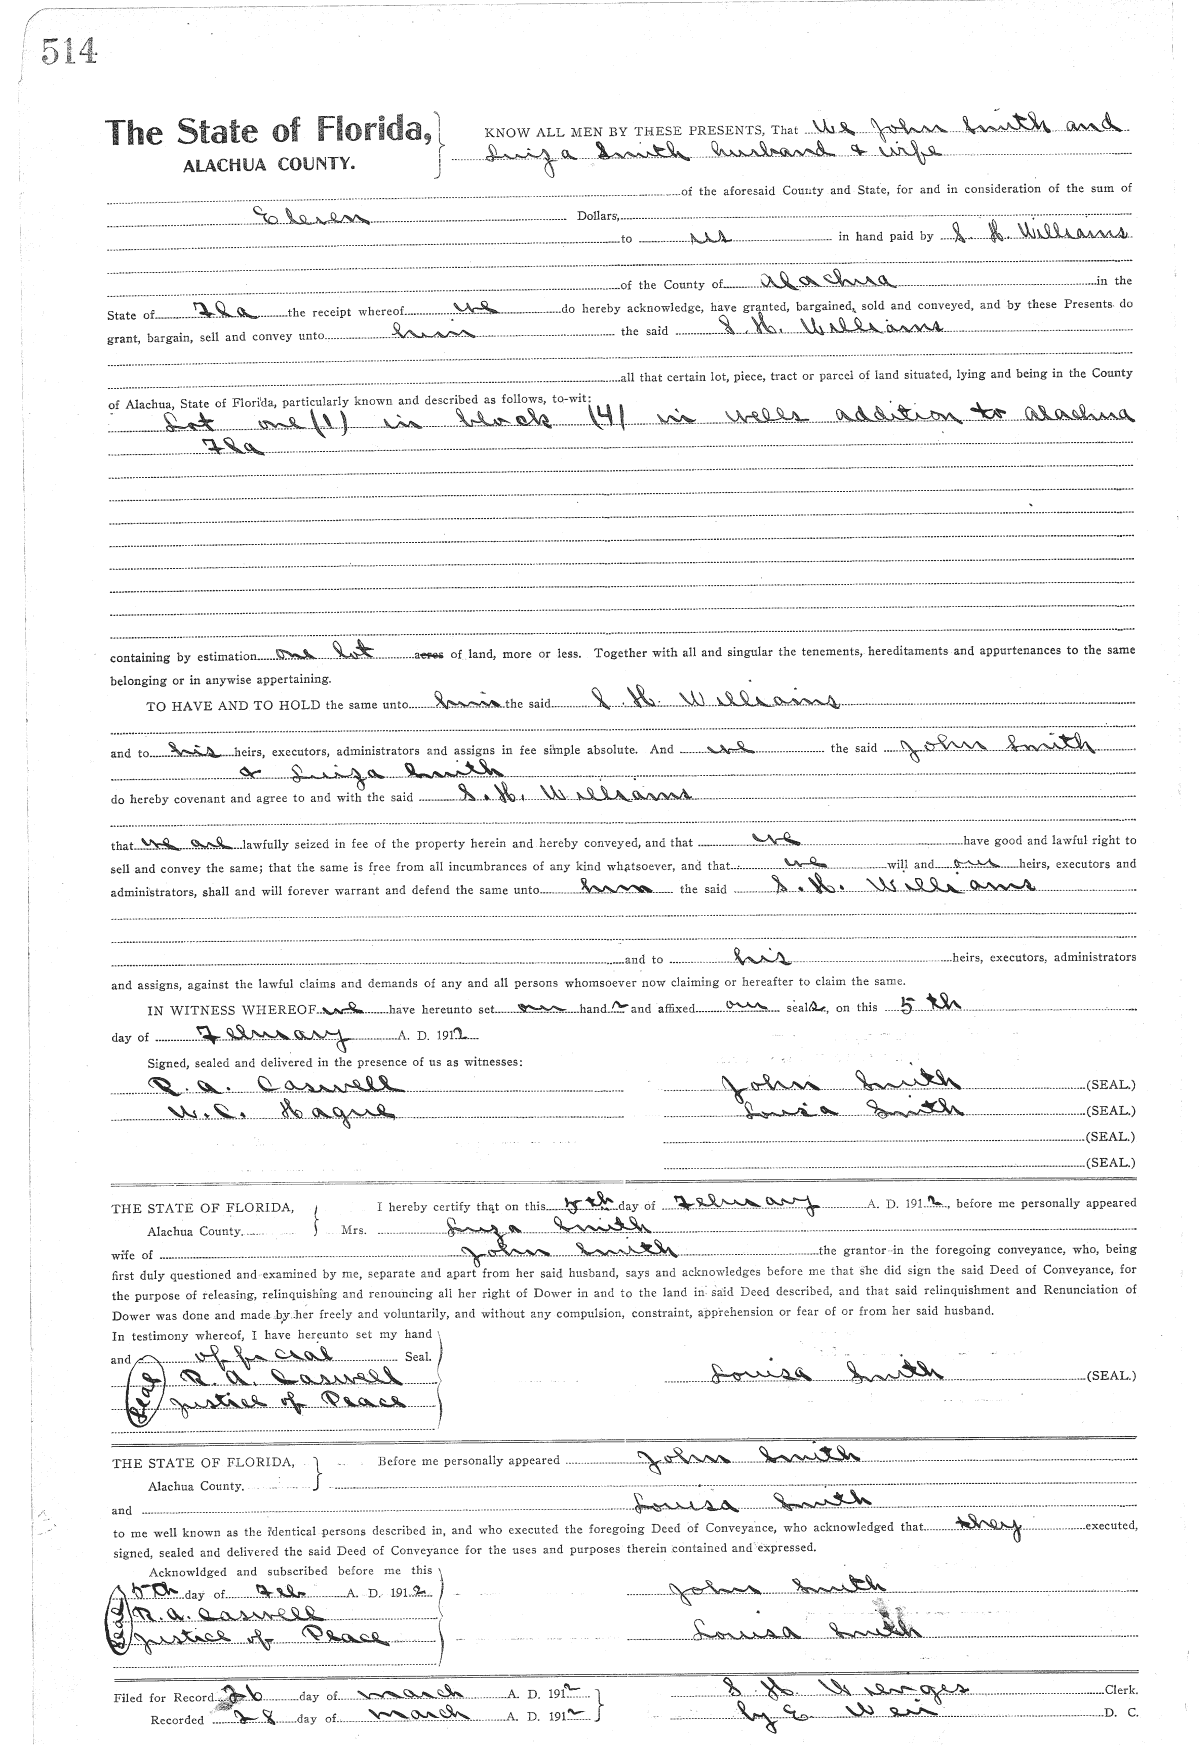 514
The State of Florida, KNOW ALL MEN BY THESE PRESENTS, That We John Smith and
ALACHUA COUNTY. Luiza Smith husband & wife
of the aforesaid County and State, for and in consideration of the sum of
Eleven Dollars,
to us in hand paid by S. H. Williams
of the County of Alachua in the
State of Fla the receipt whereof we do hereby acknowledge, have granted, bargained, sold and conveyed, and by these Presents do
grant, bargain, sell and convey unto him the said S. H. Williams
all that certain lot, piece, tract or parcel of land situated, lying and being in the County
of Alachua, State of Florida, particularly known and described as follows, to-wit:
Lot one (1) in block (4) in wells addition to Alachua
Fla
containing by estimation one lot acres of land, more or less. Together with all and singular the tenements, hereditaments and appurtenances to the same
belonging or in anywise appertaining.
TO HAVE AND TO HOLD the same unto him the said S. H. Williams
and to his heirs, executors, administrators and assigns in fee simple absolute. And we the said John Smith
& Luiza Smith
do hereby covenant and agree to and with the said S. H. Williams
that we are lawfully seized in fee of the property herein and hereby conveyed, and that we have good and lawful right to
sell and convey the same; that the same is free from all incumbrances of any kind whatsoever, and that we will and our heirs, executors and
administrators, shall and will forever warrant and defend the same unto him the said S. H. Williams
and to his heirs, executors, administrators
and assigns, against the lawful claims and demands of any and all persons whomsoever now claiming or hereafter to claim the same.
IN WITNESS WHEREOF we have hereunto set our hands and affixed our seals, on this 5th
day of February A. D. 1912
Signed, sealed and delivered in the presence of us as witnesses:
R. A. Caswell John Smith (SEAL.)
W. C. Hague Louisa Smith (SEAL.)
(SEAL.)
(SEAL.)
THE STATE OF FLORIDA, I hereby certify that on this 5th day of February A. D. 1912, before me personally appeared
Alachua County. Mrs. Luiza Smith
wife of John Smith the grantor in the foregoing conveyance, who, being
first duly questioned and examined by me, separate and apart from her said husband, says and acknowledges before me that she did sign the said Deed of Conveyance, for
the purpose of releasing, relinquishing and renouncing all her right of Dower in and to the land in said Deed described, and that said relinquishment and Renunciation of
Dower was done and made by her freely and voluntarily, and without any compulsion, constraint, apprehension or fear of or from her said husband.
In testimony whereof, I have hereunto set my hand
and official Seal.
Seal R. A. Caswell Louisa Smith (SEAL.)
Justice of Peace
THE STATE OF FLORIDA, Before me personally appeared John Smith
Alachua County.
and Louisa Smith
to me well known as the identical persons described in, and who executed the foregoing Deed of Conveyance, who acknowledged that they executed,
signed, sealed and delivered the said Deed of Conveyance for the uses and purposes therein contained and expressed.
Acknowldged and subscribed before me this
5th day of Feb A. D. 1912 John Smith
Seal R. A. Caswell
Justice of Peace Louisa Smith
Filed for Record 26 day of March A. D. 1912 S. H. Wienges Clerk.
Recorded 28 day of March A. D. 1912 by E. Weir D. C.